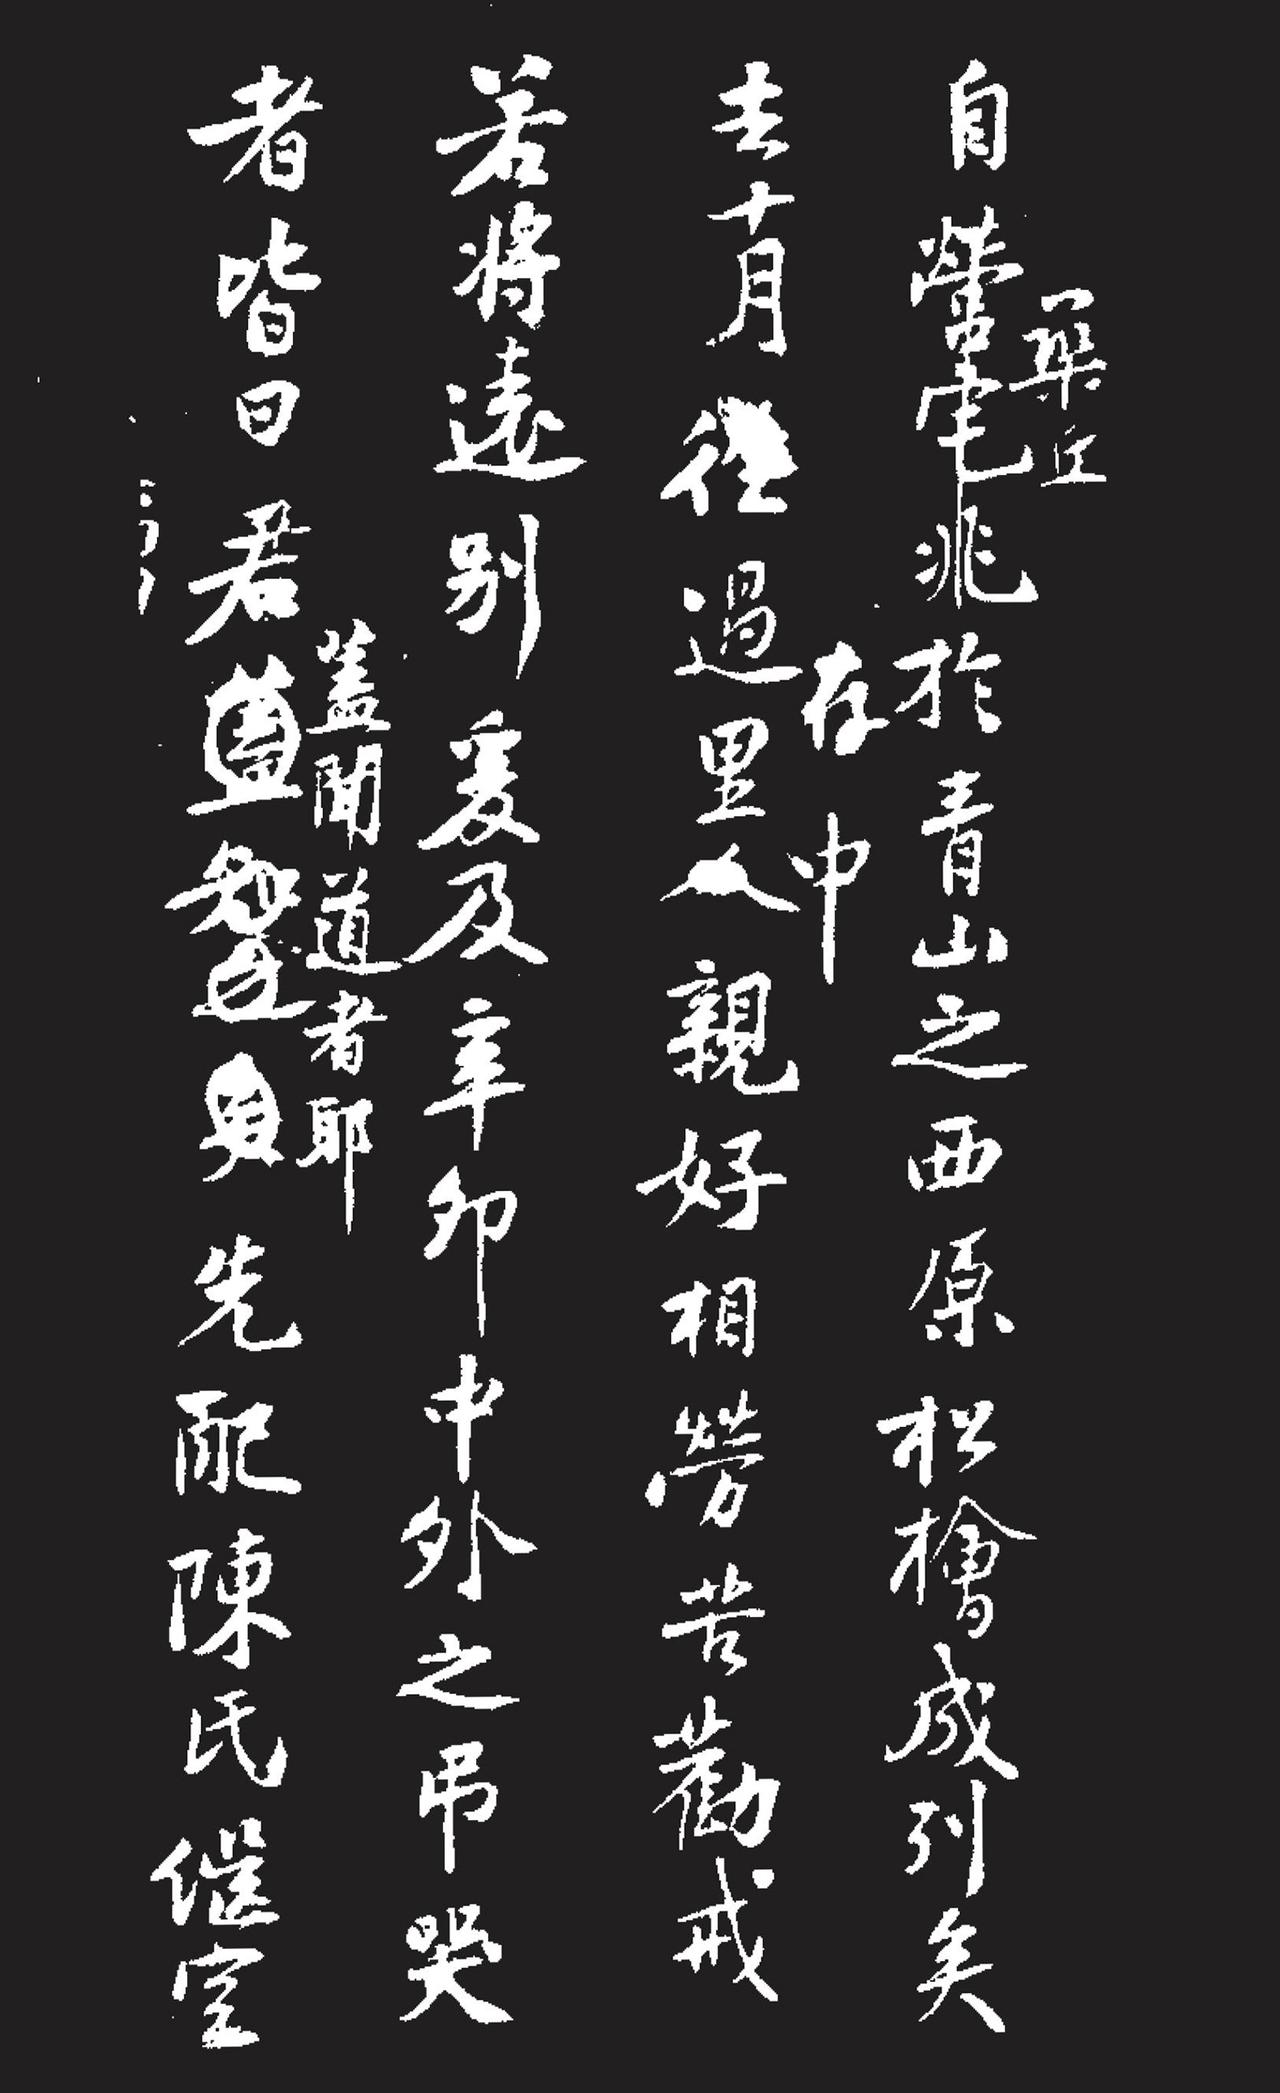 自營宅兆於青山之西原松檜成列矣
築丘
去十月過里人親好相勞苦勸戒
存中
若將遠別爰及辛卯中外之弔哭
者皆曰君先配陳氏繼室
蓋聞道者耶